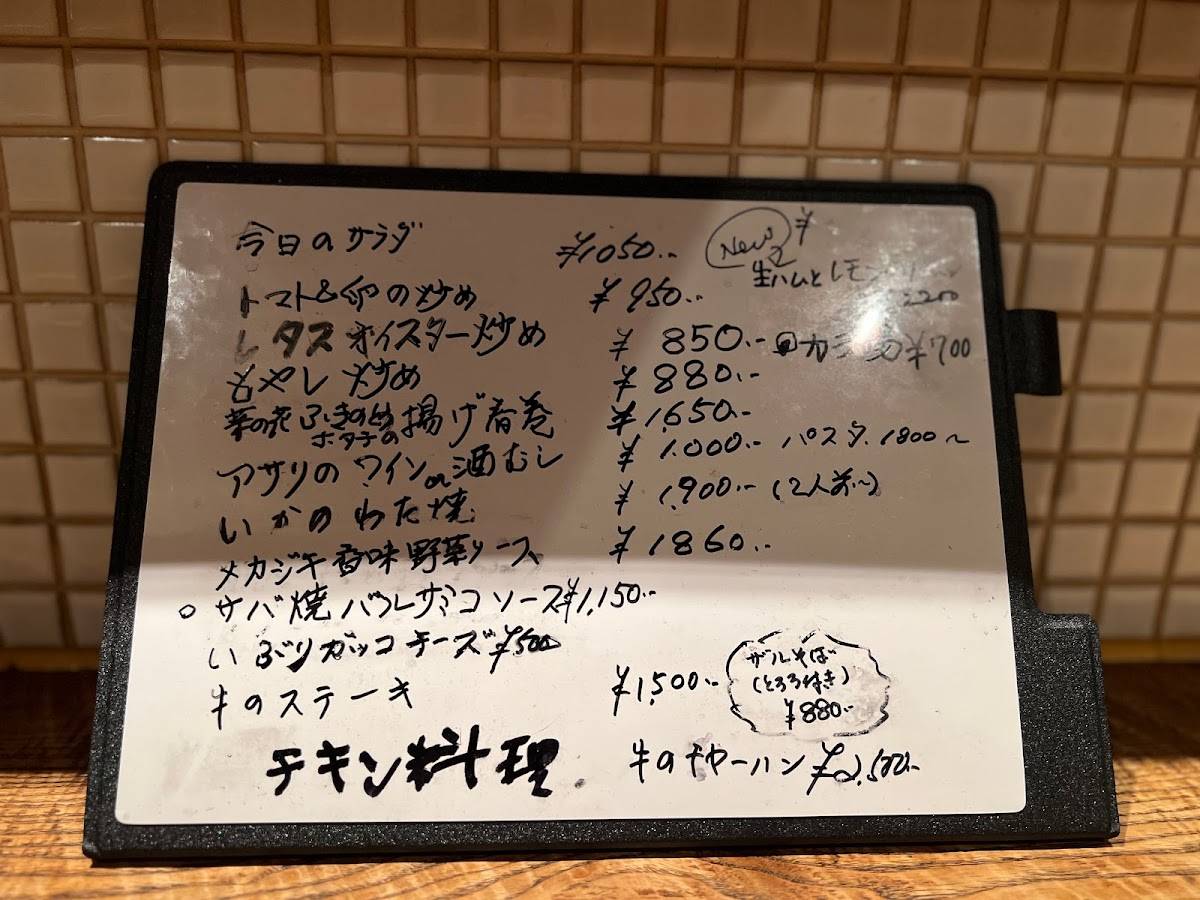 今日のサラダ ¥1050.-
New ¥
生ハムとレモン
トマト&卵の炒め ¥950.-
レタスオイスター炒め ¥850.-
¥700
もやし炒め ¥880.-
菜の花 ふきのとう ホタテの 揚げ春巻 ¥1,650.-
アサリのワイン or 酒むし ¥1.000.- パスタ.1800~
いかのわた焼 ¥1,900.- (2人前~)
メカジキ香味野菜ソース ¥1860.-
○サバ焼バルサミコソース¥1,150.-
いぶりガッコチーズ¥500
牛のステーキ ¥1,500.-
ザルそば
(とろろ付き)
¥880.-
チキン料理 牛のチャーハン ¥2,500.-